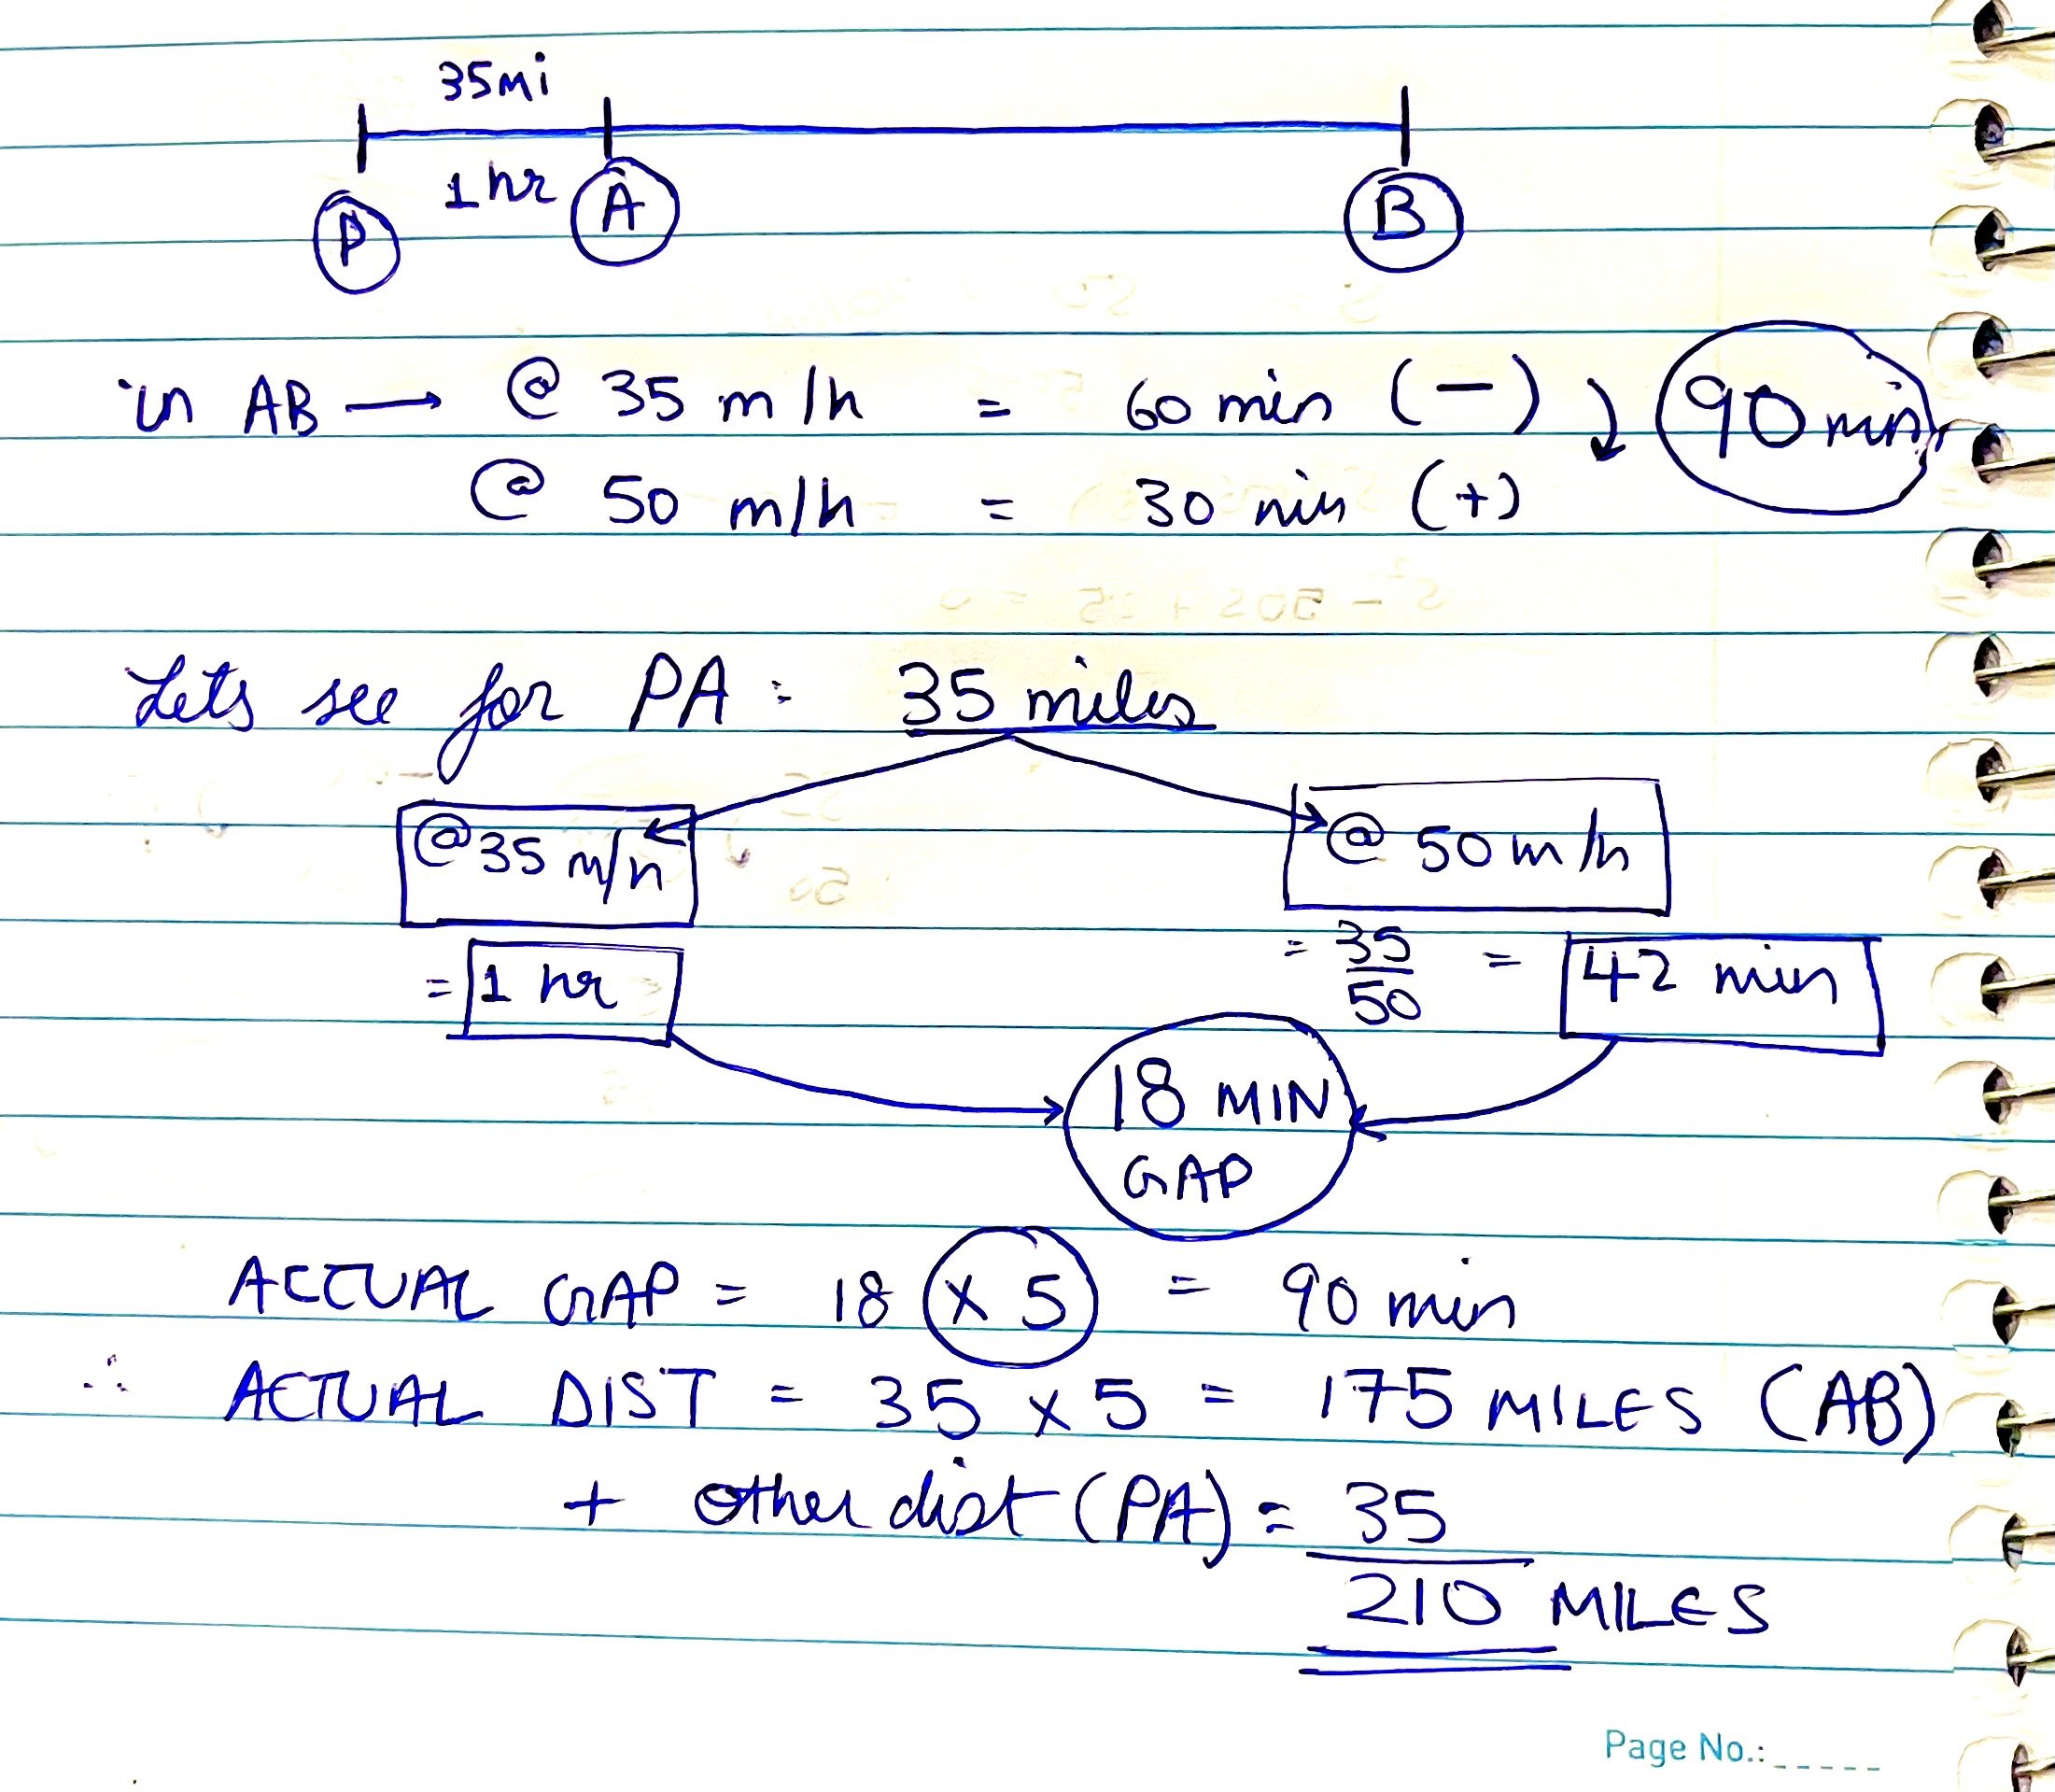 35mi
1hr
P A B
in AB → @ 35 m/h = 60 min (-) 90 min
@ 50 m/h = 30 min (+)
Lets see for PA : 35 miles
@35 m/h @ 50 m/h
= 1 hr = 35/50 = 42 min
18 MIN
GAP
ACTUAL GAP = 18 × 5 = 90 min
∴ ACTUAL DIST = 35 x 5 = 175 MILES (AB)
+ other dist (PA) = 35
210 MILES
Page No.: _ _ _ _ _